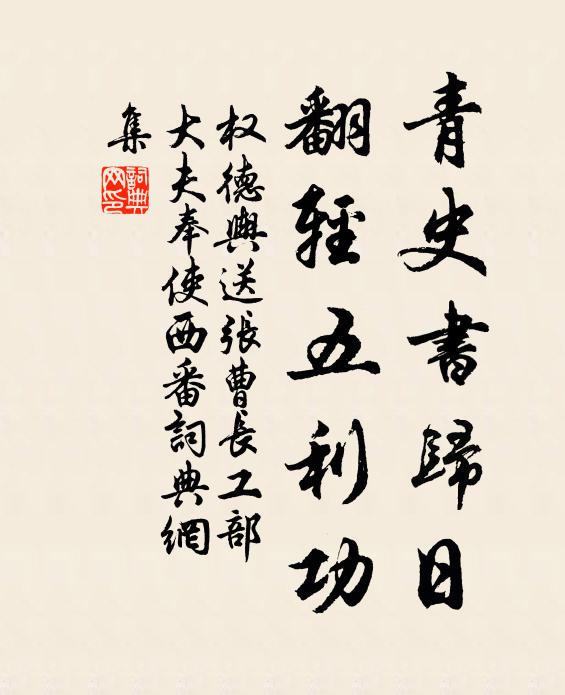 青史書歸日
翻輕五利功
权德輿送張曹長工部
大夫奉使西番詞典網
集
詞典
网印